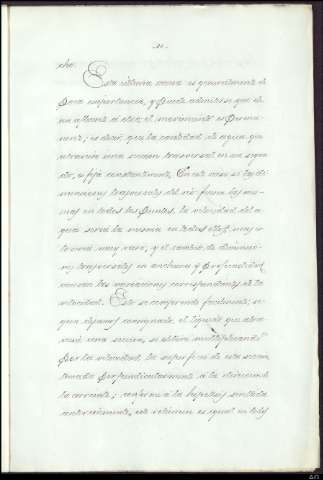 cho.
Esta última causa es generalmente de
poca importancia, y puede admitirse que de
un afluente á otro, el movimiento es perma-
nente; es decir que la cantidad de agua que
atraviesa una seccion transversal en un segun-
do, es fija constantemente. En este caso si las di-
mensiones transversales del rio fueran las mis-
mas en todos los puntos, la velocidad del a-
gua seria la misma en todos ellos, mas es-
to será muy raro, y el cambio de dimensio-
nes transversales en anchura y profundidad
causan las variaciones correspondientes de la
velocidad. Esto se comprende facilmente; se-
gun dejamos consignado, el líquido que atra-
viesa una seccion, se obtiene multiplicando
por la velocidad, la superficie de una seccion
tomada perpendicularmente á la direccion de
la corriente; conforme á la hipotesis sentada
anteriormente, este volúmen es igual en todos